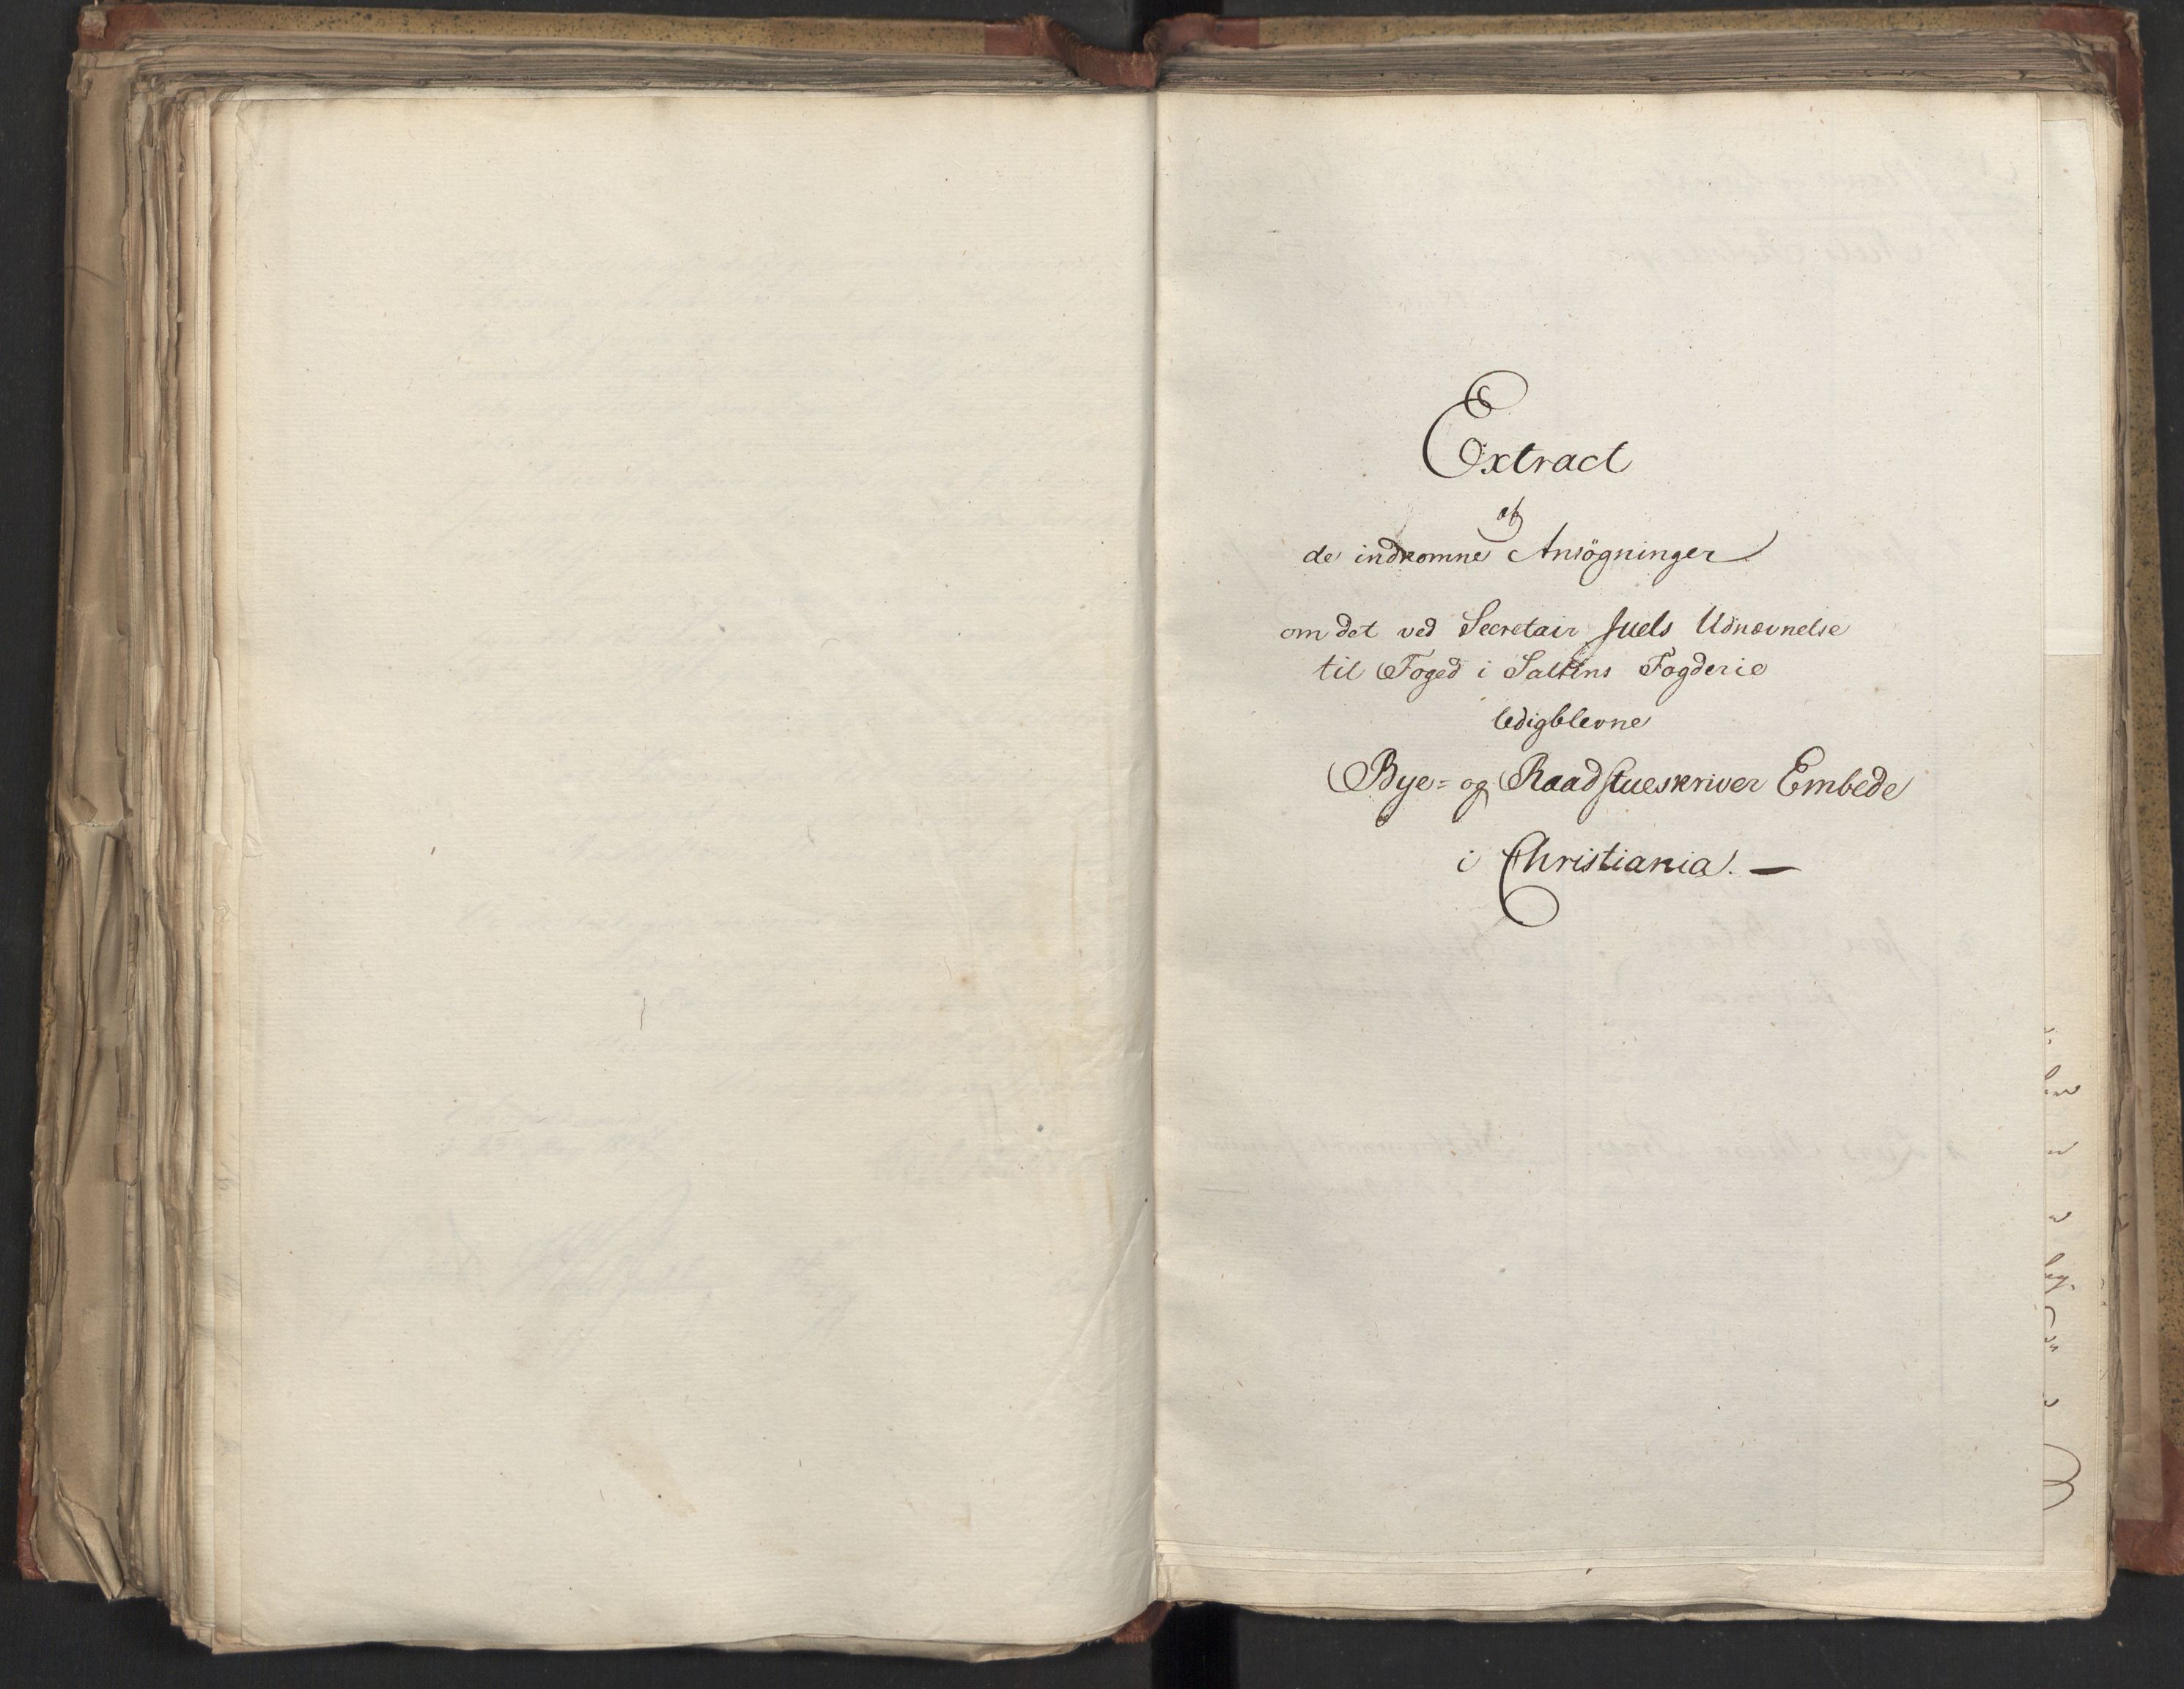 Extract
af
de indkomne Ansögninger
om det ved Secretair Juels Udnævnelse
til Foged i Saltens Fogderie
ledigblevne
Bye= og Raadstueskriver Embede
i Christiania. —